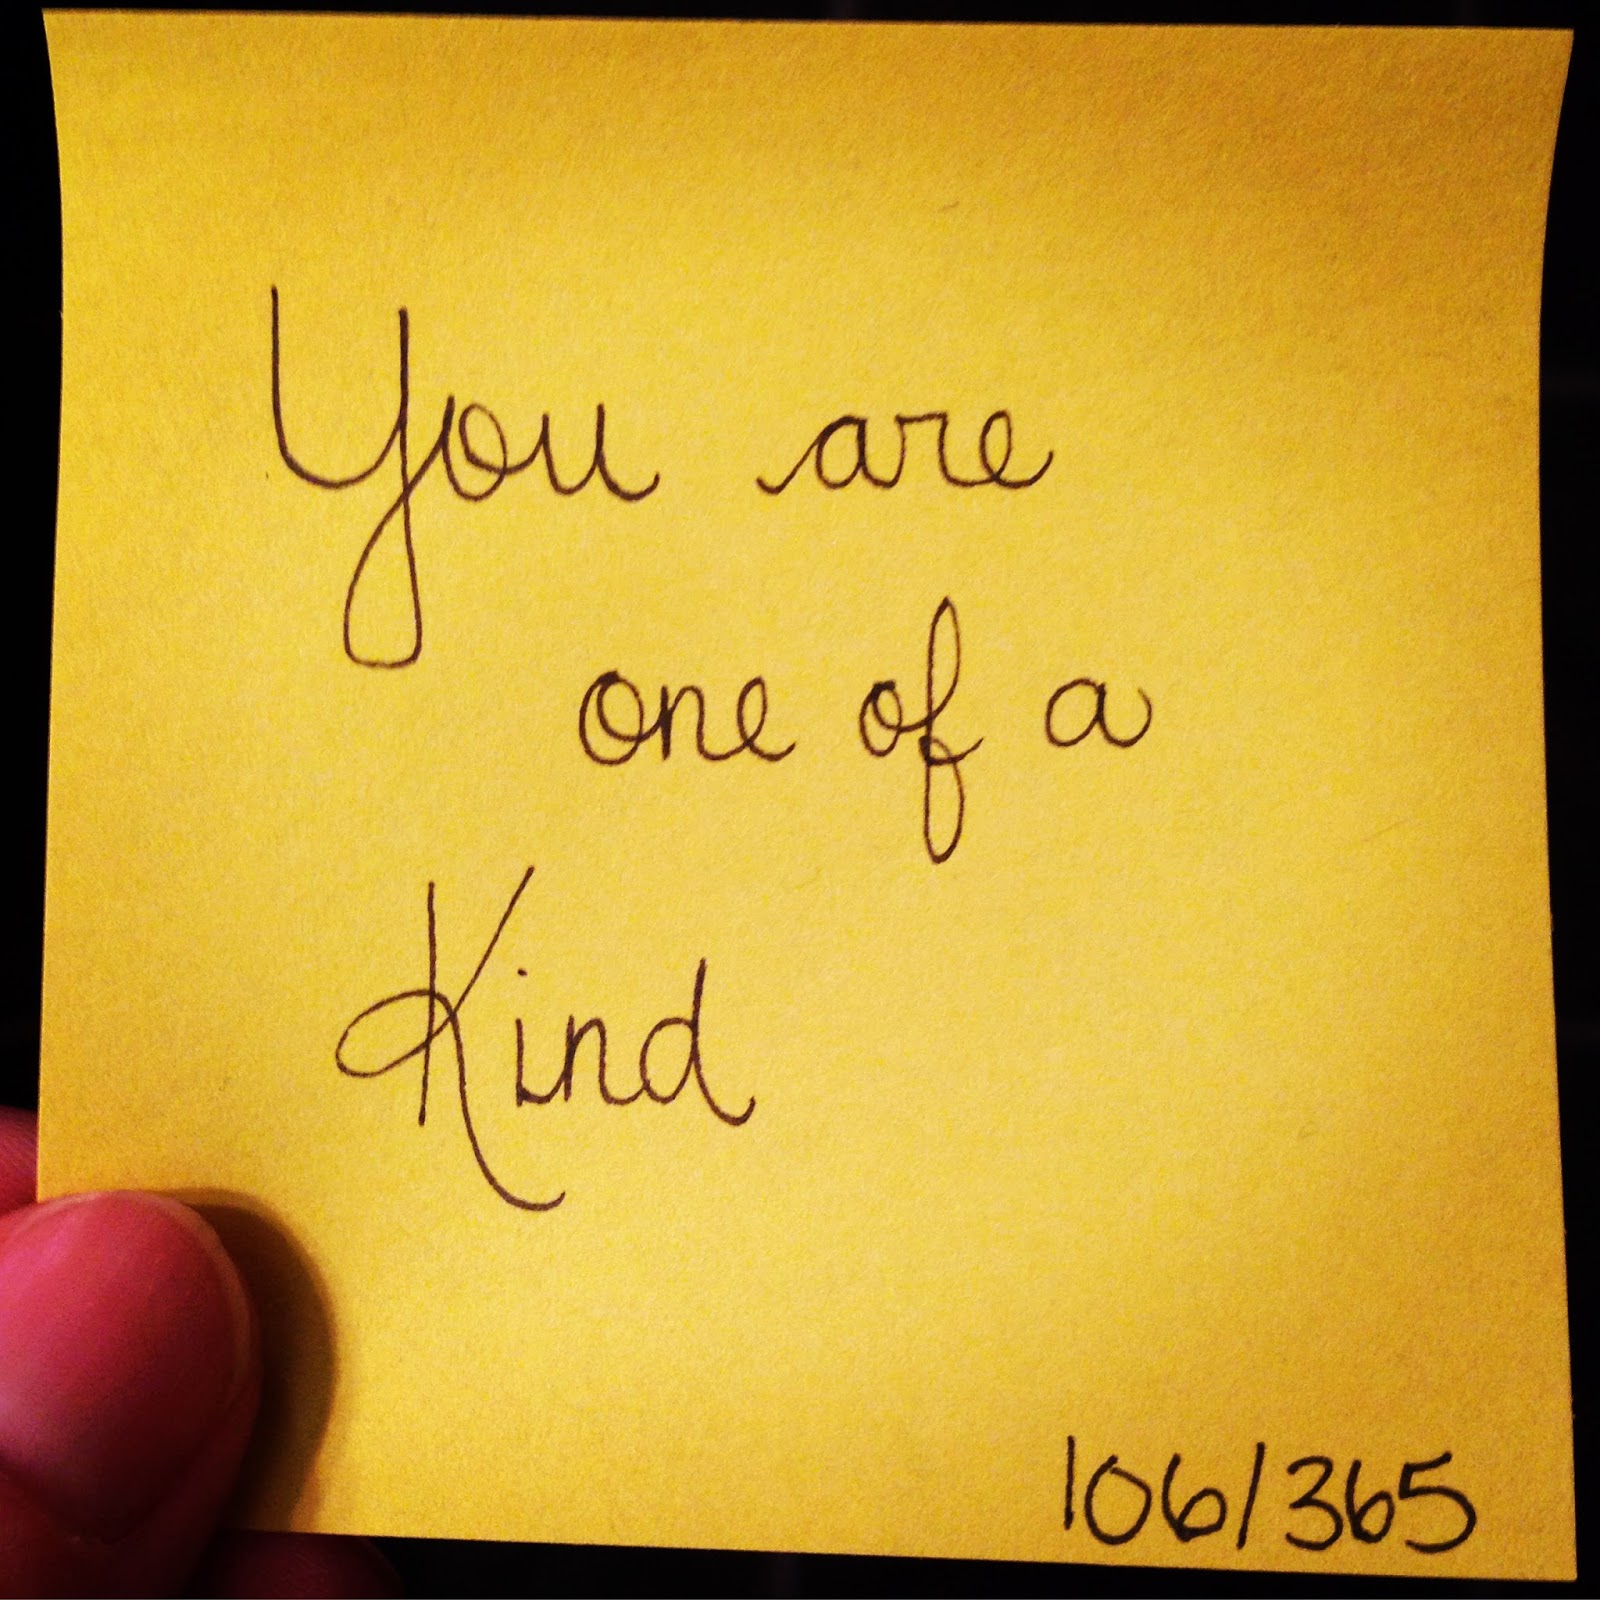 You are
one of a
Kind
106/365